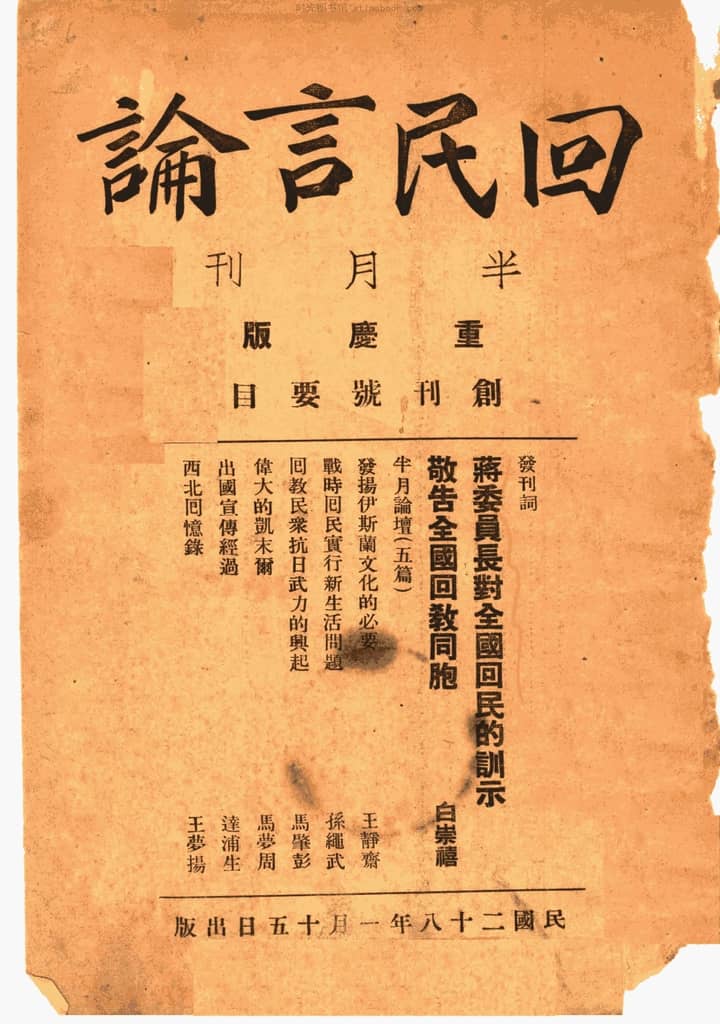 回民言論
半月刊
重慶版
創刊號要目
發刊詞
蔣委員長對全國回民的訓示
敬告全國回教同胞 白崇禧
半月論壇(五篇)
發揚伊斯蘭文化的必要 王靜齋
戰時回民實行新生活問題 孫繩武
回教民衆抗日武力的興起 馬肇彭
偉大的凱末爾 馬夢周
出國宣傳經過 達浦生
西北回憶錄 王夢揚
民國二十八年一月十五日出版